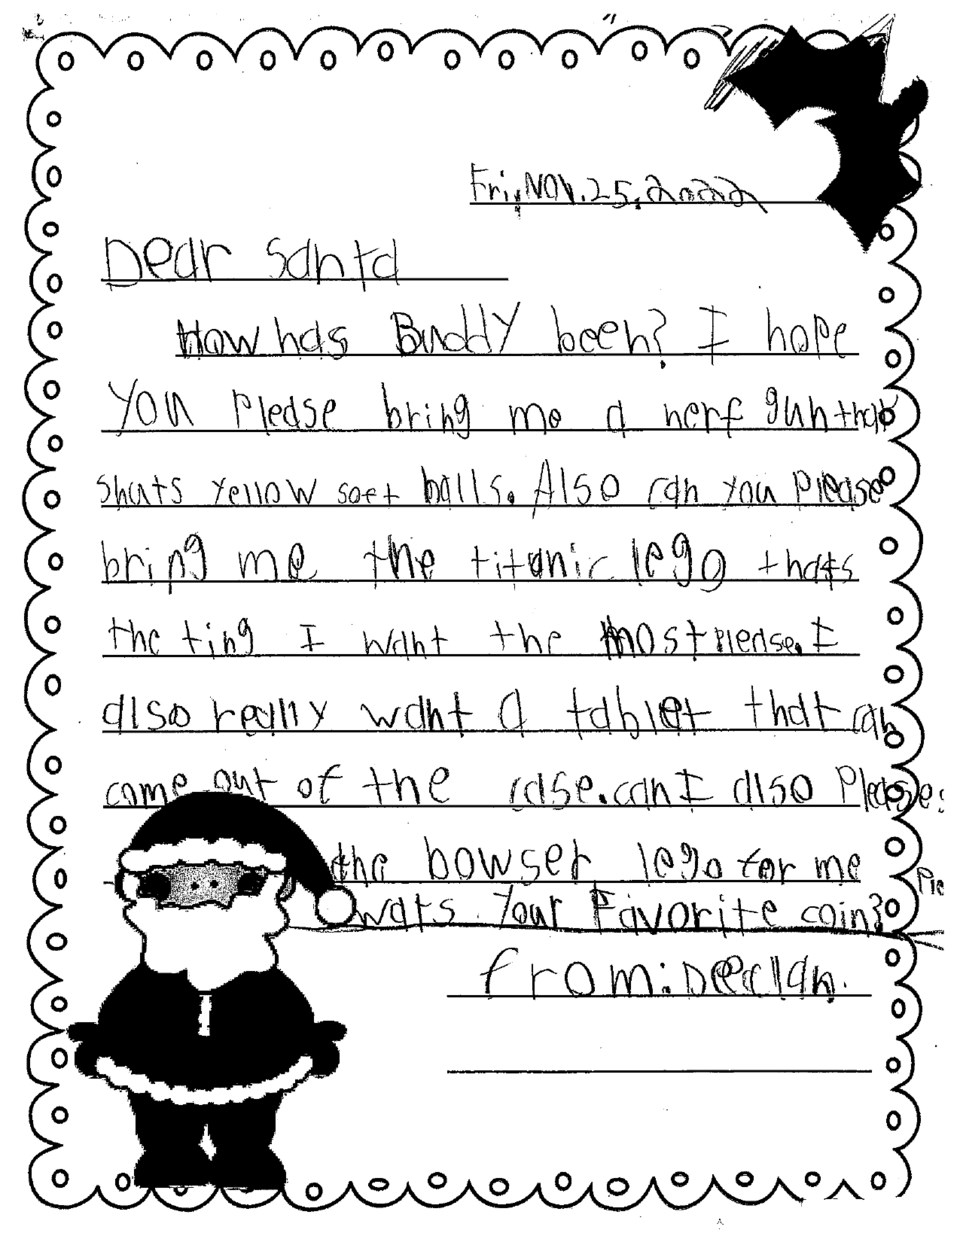 Fri, Nov. 25, 2022
Dear Santa
How has Buddy been? I hope
you Please bring me a nerf gun that
shuts yellow soft balls. Also can you Please
bring me the titanic lego thats
the ting I want the most Please. I
also really want a tablet that can
come out of the case. can I also Please
the bowser lego for me
wats Your Favorite coin?
from: Declan.